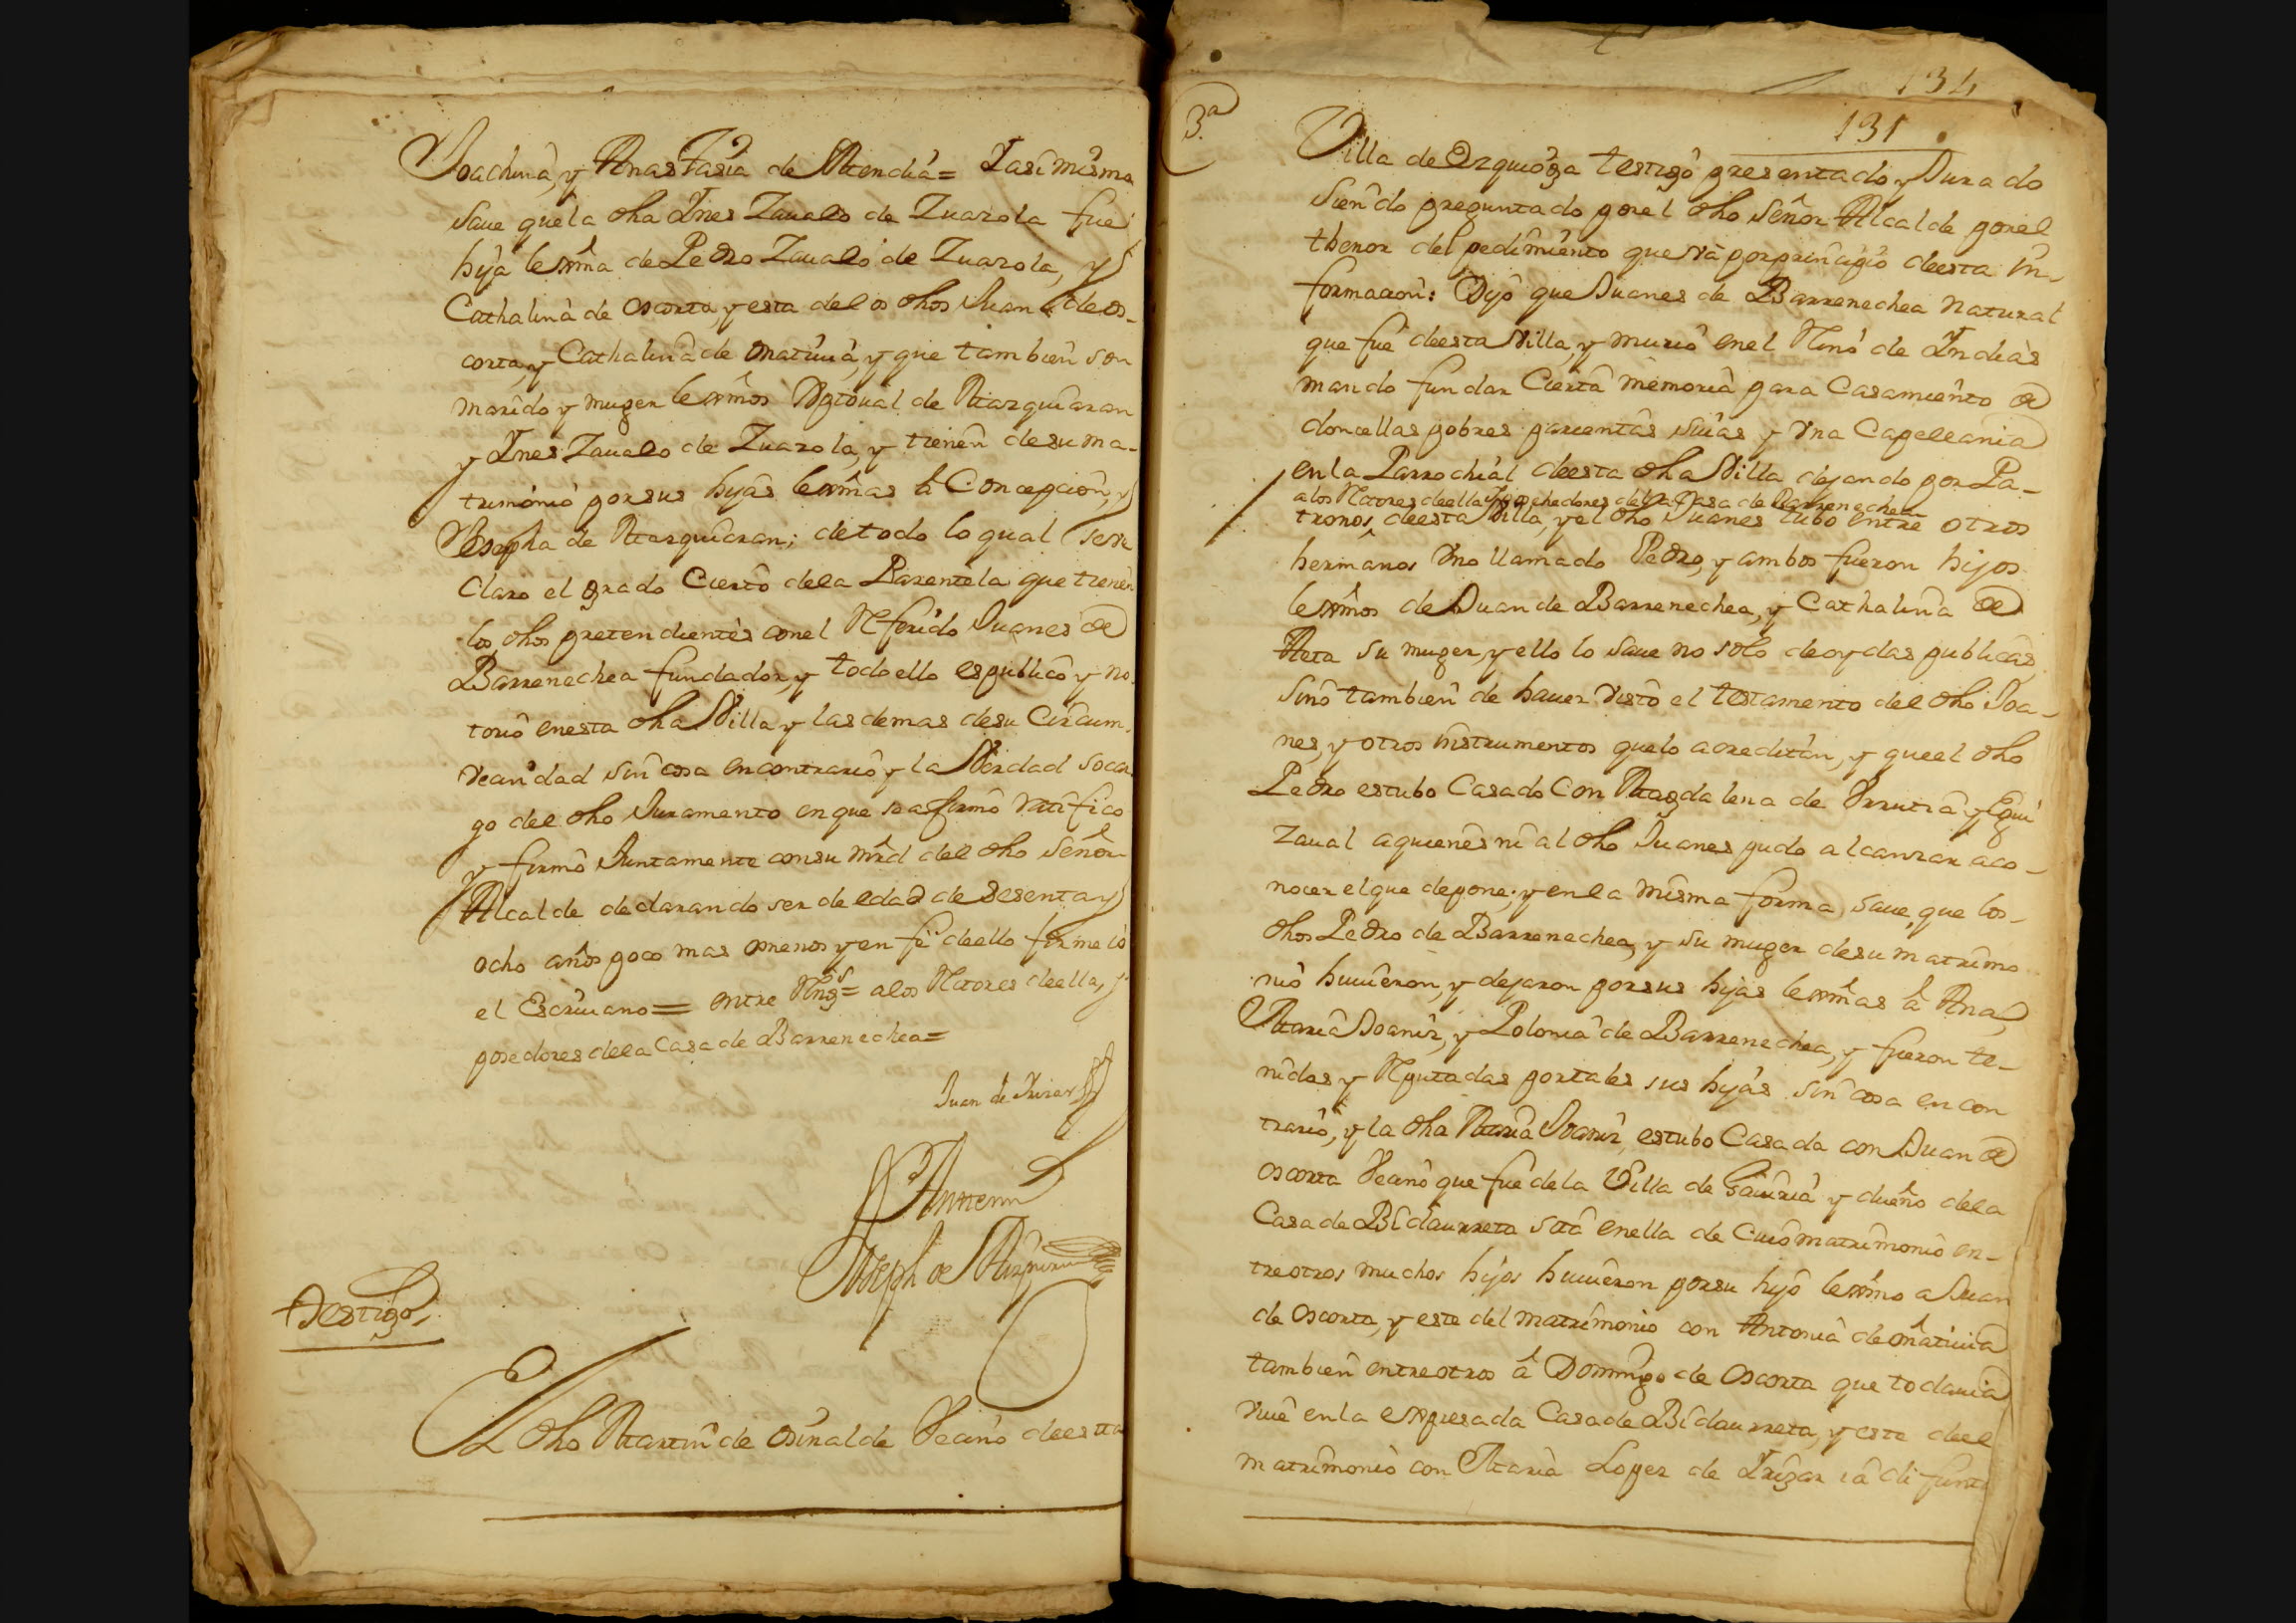 Joachina, y Anastasia de Mendia = Y asi mismo
saue que la dha Ynes Zaualo de Zuazola fue
hija lexma de Pedro Zaualo de Zuazola, y
Cathalina de oscorta, y esta delos dhos Juan de os-
corta, y Cathalina de onativia, y que tambien son
marido y muger lexmos Xptoual de Marquiaran
y Ynes Zaualo de Zuazola, y tienen de su ma-
trimonio por sus hijas lexmas â Concepcion, y
Josepha de Marquiaran; de todo lo qual se ve
claro el grado cierto dela Parentela que tienen
los dhos pretendientes con el Referido Juanes de
Barrenechea fundador, y todo ello es publico y no-
torio en esta dha Villa y las demas de su Circum-
vecindad sin cosa en contrario y la Verdad so car-
go del dho Juramento en que se afirmó ratifico
y firmó Juntamente con su mrd del dho Señor
Alcalde declarando ser de edad de sesenta y
ocho años poco mas omenos y en fe de ello firme io
el Escriuano = entre Rngs = alos Rectores de ella, y
posedores dela Casa de Barrenechea =
Juan de
Antemi
Joseph de
Testigo,
El dho Martin de osinalde Vecino de esta
3.ª
134
131
Villa de Ozquiosa testigo presentado, y Jurado
siendo preguntado por el dho Señor Alcalde por el
thenor del pedimiento que vâ por principio de esta in-
formacion: Dijo que Juanes de Barrenechea natural
que fue de esta Villa, y murio en el Rno de Yndias
mando fundar Cierta memoria para Casamiento de
doncellas pobres parientas suias y vna Capellania
en la Parrochial de esta dha Villa dejando por Pa-
alos Rectores de ella y posehedores dela Casa de Barrenechea
tronos, de esta Villa, y el dho Juanes tubo entre otros
hermanos vno llamado Pedro, y ambos fueron hijos
lexmos de Juan de Barrenechea, y Cathalina de
Aeta su muger, y ello lo saue no solo de oydas publicas
sino tambien de hauer visto el testamento del dho Joa-
nes, y otros instrumentos que lo acreditan, y que el dho
Pedro estubo Casado Con Magdalena de Vrrutia y Egui
zaual a quienes ni al dho Juanes pudo alcanzar a co-
nocer el que depone; y en la misma forma saue, que los
dhos Pedro de Barrenechea, y su muger de su matrimo
nio huuieron, y dejaron por sus hijas lexmas â Ana,
Maria Joaniz, y Polonia de Barrenechea, y fueron te-
nidas y Reputadas por tales sus hijas sin cosa en con
trario, y la dha Maria Joaniz estubo Casada con Juan de
oscorta Vecino que fue de la Villa de Gauiria y dueño dela
Casa de Bidaurreta sita en ella de Cuio matrimonio en-
tre otros muchos hijos huuieron por su hijo lexmo a Juan
de oscorta, y este del matrimonio con Antonia de onativia
tambien entre otros â Domingo de oscorta que todauia
viue en la expresada Casa de Bidaurreta, y este de el
matrimonio con Maria Lopez de Yrizar ia difunta